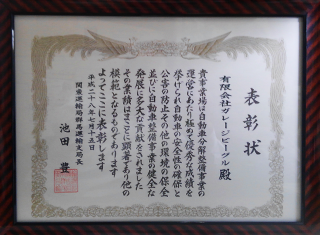 表彰状
有限会社ガレージビークル殿
貴事業場は自動車分解整備事業の
運営にあたり極めて優秀な成績を
挙げられ自動車の安全性の確保と
公害の防止その他の環境の保全
並びに自動車整備事業の健全な
発展に多大な貢献をされました
その業績はまことに顕著であり他の
模範となるものであります
よってここに表彰します
平成二十八年七月十五日
関東運輸局群馬運輸支局長
池田豊